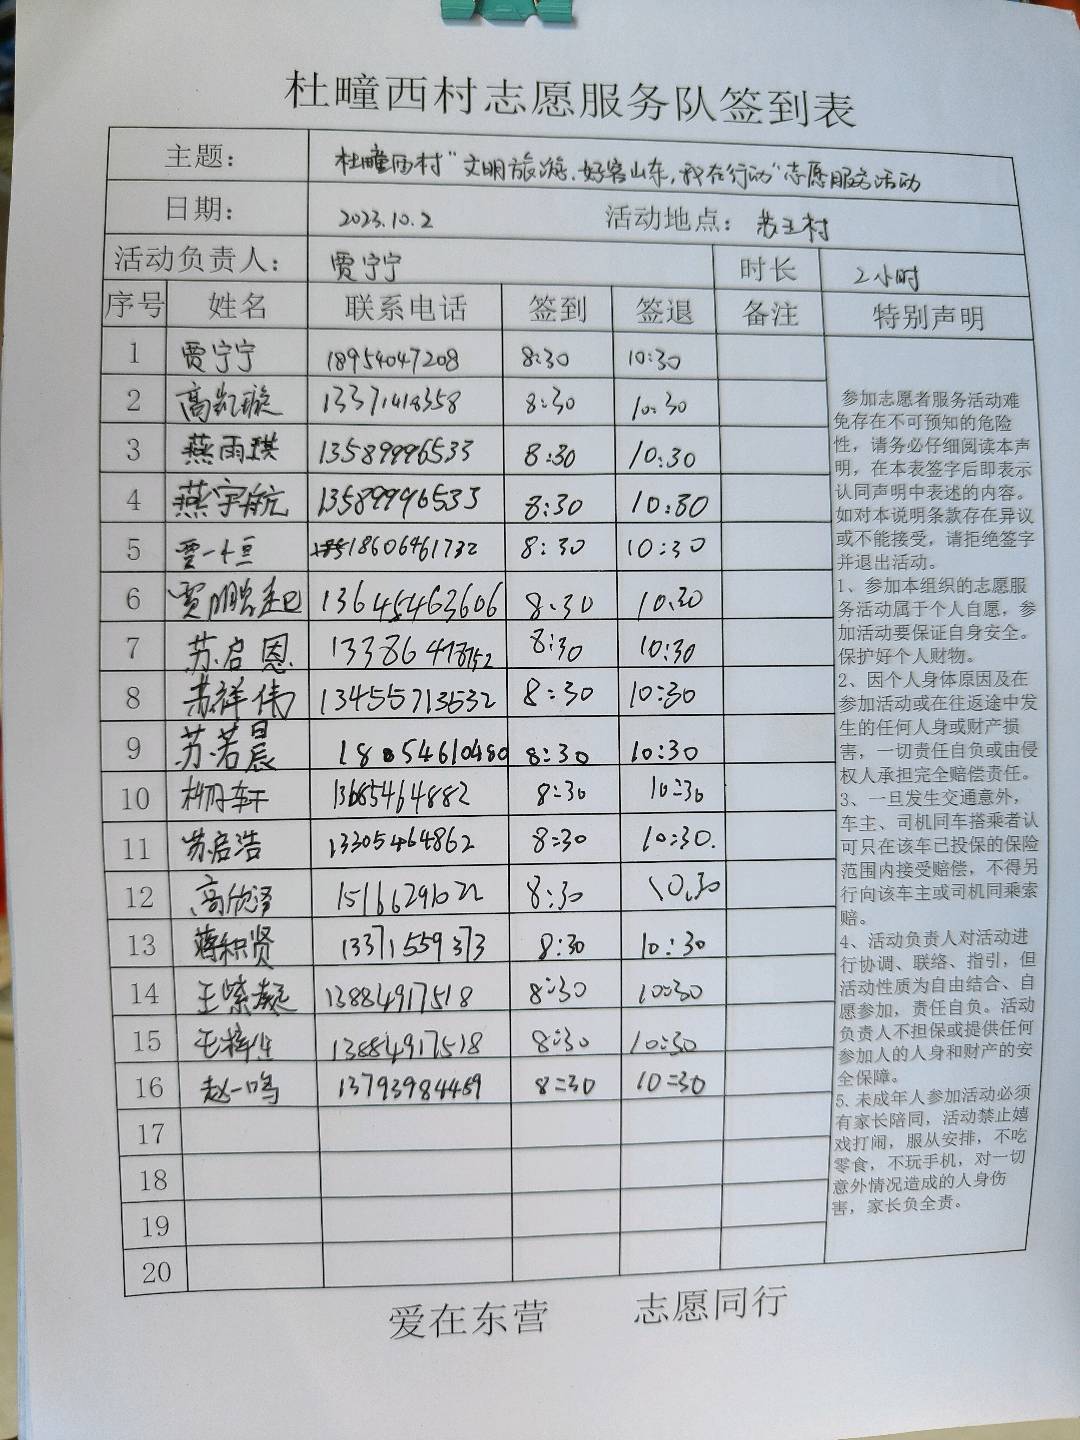 杜疃西村志愿服务队签到表
主题： 杜疃西村“文明旅游，好客山东，我在行动”志愿服务活动
日期： 2023.10.2 活动地点： 苏王村
活动负责人： 贾宁宁 时长 2小时
序号 姓名 联系电话 签到 签退 备注 特别声明
1 贾宁宁 18954047208 8:30 10:30
2 高凯璇 13371418358 8:30 10:30
3 燕雨琪 13589996533 8:30 10:30
4 燕宇航 13589996533 8:30 10:30
5 贾一恒 18606461732 8:30 10:30
6 贾鹏起 13645463606 8:30 10:30
7 苏启恩 13386478752 8:30 10:30
8 苏祥伟 13455713532 8:30 10:30
9 苏若晨 18854610480 8:30 10:30
10 13685464882 8:30 10:30
11 苏启浩 13305464862 8:30 10:30.
12 高欣泽 15166291022 8:30 10:30
13 蒋积贤 13371559373 8:30 10:30
14 王紫凝 13884917518 8:30 10:30
15 王梓生 13884917518 8:30 10:30
16 赵一鸣 13793984469 8:30 10:30
17
18
19
20
参加志愿者服务活动难
免存在不可预知的危险
性，请务必仔细阅读本声
明，在本表签字后即表示
认同声明中表述的内容。
如对本说明条款存在异议
或不能接受，请拒绝签字
并退出活动。
1、参加本组织的志愿服
务活动属于个人自愿，参
加活动要保证自身安全。
保护好个人财物。
2、因个人身体原因及在
参加活动或在往返途中发
生的任何人身或财产损
害，一切责任自负或由侵
权人承担完全赔偿责任。
3、一旦发生交通意外，
车主、司机同车搭乘者认
可只在该车已投保的保险
范围内接受赔偿，不得另
行向该车主或司机同乘索
赔。
4、活动负责人对活动进
行协调、联络、指引，但
活动性质为自由结合、自
愿参加，责任自负。活动
负责人不担保或提供任何
参加人的人身和财产的安
全保障。
5、未成年人参加活动必须
有家长陪同，活动禁止嬉
戏打闹，服从安排，不吃
零食，不玩手机，对一切
意外情况造成的人身伤
害，家长负全责。
爱在东营 志愿同行